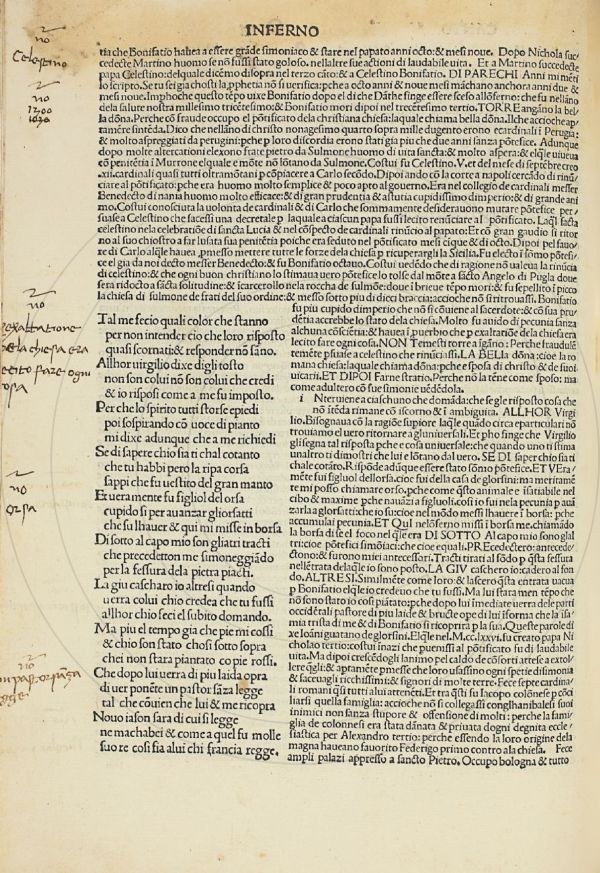 INFERNO
tia che Bonifatio habea a essere grāde simoniaco & stare nel papato anni octo: & mesi noue. Dopo Nichola suc-
cedecte Martino huomo se nō fussi stato goloso. nellaltre sue actioni di laudabile uita. Et a Martino succedecte
papa Celestino: delquale dicēmo disopra nel terzo cāto: & a Celestino Bonifatio. DI PARECHI Anni mi mētì
lo scripto. Se tu sei gia chosti la
mesi noue. Imphoche questo tēpo uixe Bonifatio dopo el di che Dāthe finge essere sceso allōferno: che fu nellāno
della salute nostra millesimo trecētesimo: & Bonifatio mori dipoi nel trecētotertio. TORRE angāno la bel-
la dōna. Perche cō fraude occupo el pōtificato dela christiana chiesa: laquale chiama bella dōna.
tamēre sintēda. Dico che nellāno di christo nonagesimo quarto sopra mille dugento erono ecardinali i Perugia:
& molto aspreggiati da perugini: pche p loro discordia erono stati gia piu che due anni sanza pōtefice. Adunque
dopo molte altercationi elexono frate pietro da Sulmone huomo di uita sancta: & molto aspera: & elqle uiueua
cō penitētia i Murrone elquale e mōte nō lōtano da Sulmone. Costui fu Celestino. V. et del mese di septēbre creo
.xii. cardinali quasi tutti oltramōtani p cōpiacere a Carlo secōdo. Dipoi andō cō la corte a napoli cercādo di rinū
ciare al pōtificato: pche era huomo molto semplice & poco apto al gouerno. Era nel collegio de cardinali messer
Benedecto di nania huomo molto efficace: & di gran prudentia & astutia cupidissimo dimperio: & di grande ani
mo. Costui conosciuta la uolonta de cardinali & di Carlo che sommamente desiderauono mutare pōtefice per-
suase a Celestino che facessi una decretale p laquale a ciascun papa fussi lecito renūciare al pōtificato. Laql facta
celestino nela celebratiōe di sancta Lucia & nel cōspecto de cardinali rinūcio al papato: Et cō gran gaudio si ritor
no al suo chiostro a far lusata sua penitētia poiche era seduto nel pōtificato mesi cique & di octo. Dipoi pel fauo
re di Carlo alqle hauea pmesso mettere tutte le forze dela chiesa p ricuperargli la Sicilia. Fu electo i sōmo pōtefi-
ce el gia da noi decto messer Benedecto: & fu Bonifatio octauo. Costui uedēdo che di ragione nō ualeua la rinūcia
di celestino: & che ogni buon christiano lo stimaua uero pōtefice lo tolse dal mōte a sācto Angelo di Pugla doue
sera ridocto a sācta solitudine: & icarcerollo nela roccha de sulmōe: doue i brieue tēpo mori: & fu sepellito i picco
la chiesa di sulmone de frati del suo ordine: & messo sotto piu di dieci braccia: accioche nō si tritroussi. Bonifatio
fu piu cupido dimperio che nō si cōuiene al sacerdote: & cō sua pru
dētia accrebbe lo stato dela chiesa. Molto fu auido di pecunia sanza
alchuna cōsciētia: & hauea i puerbio che p exaltatiōe dela chiesa era
lecito fare ogni cosa. NON Temesti torre a īgāno: Perche fraudulē
temēte psuase a celestino che rinūciassi. LA BELla dōna: cioe la ro
mana chiesa: laquale chiama dōna: pche e sposa di christo & de suoi
uicarii. ET DIPOI Farne stratio. Perche nō la tēne come sposo: ma
come adultero cō fue simonie uēdēdola.
Tal me fecio quali color che stanno
per non intender cio che loro risposto
quasi scornati: & responder nō sāno.
Allhor uirgilio dixe digli tosto
non son colui nō son colui che credi
& io risposi come a me fu imposto.
Per che lo spirito tutti storse epiedi
poi sospirando cō uoce di pianto
mi dixe adunque che a me richiedi
Se di saper chio sia ti chal cotanto
che tu habbi pero la ripa corsa
sappi che fu uestito del gran manto
Et ueramente fu figliuol del orsa
cupido si per auanzar gliorsatti
che su lhauer & qui mi misse in borsa
Di sotto al capo mio son gliatri tracti
che precedetton me simoneggiādo
per la fessura dela pietra piacti.
La giu caschero io altresi quando
uerra colui chio credea che tu fussi
allhor chio feci el subito domando.
Ma piu el tempo gia che pie mi cossi
& chio son stato chosi sotto sopra
chei non stara piantato co pie rossi.
Che dopo lui uerra di piu laida opra
di uer ponēte un pastor sāza legge
tal che cōuien che lui & me ricopra
Nouo iason sara di cui si legge
ne machabei & come a quel fu molle
suo re cosi fia alui chi francia regge.
i Nteruiene a ciaschuno che domāda: che se gle risposto cosa che
nō itēda rimane cō iscorno & i ambiguita. ALLHOR Virgi
lio. Bisognaua cō la ragiōe supiore laqle quādo circa eparticulari nō
trouiamo el uero ritornare agluniuersali. Et pho finge che Virgilio
gli segna tal risposta pche e cosa uniuersale: che quando uno ti stima
unaltro ti dimostri che lui e lōtano dal uero. SE DI saper chio sia ti
chale cotāto. Rispōde adūque essere stato sōmo pōtefice. ET VEra-
mēte fui figliuol dellorsa: cioe fui della casa de glorsini: ma meritamē
te mi posso chiamare orso. pche come qsto animale e isatiabile nel
cibo & maxime pche nauāzi a figluoli. cosi io fui nela pecunia p auā
zarla a glorsatti: che io su: cioe nel mōdo messi lhauere i borsa: pche
accumulai pecunia. ET QUI nelōferno missi i borsa me. chiamādo
la borsa di se el foco nel qle era DI SOTTO Al capo mio sono glal
tri: cioe pōtefici simōiaci: che cioe equali. PREcedectero: antecede-
ctono: & furono miei antecessori. Tracti tirati al fōdo p qsta fessura
nell ētrata dela qle io sono posto. LA GIV caschero io: cadero al fon
do. ALTRESI. Similmēte come loro: & lascero qsta entrata uacua
p Bonifatio elqle io credeuo che tu fussi. Ma lui stara men tēpo che
nō sono stato io cosi piātato: pche dopo lui īmediate uerra dele parti
occidētali pastore di piu laide & brutte ope di lui iforma che la īfa
mia trista di me & di Bonifatio si ricoprirra p la sua. Queste parole di
xe Ioāni guatano de glorsini. Elqle nel. M.cc.lxxvi. fu creato papa Ni
cholao tertio: costui īnazi che puenissi al pōtificato fu di laudabile
uita. Ma dipoi crescēdogli lanimo pel caldo de cōsorti attese a extol
lere qlli: & aptamēte pmesse che loro usassino ogni spetie disimonia
& faceuagli ricchissimi: & signori di molte terre. Fece septe cardina
li romani qsi tutti alui attenēti. Et tra qsti fu Iacopo colōnese p cōci
liarsi quella famiglia: accioche nō si collegassi conglhanibalesi suoi
inimici non sanza stupore & offensione di molti: perche la fami-
glia de colonnesi era stata dānata & priuata dogni degnita eccle-
siastica per Alexandro tertio: perche essendo la loro origine dela
magna haueano fauorito Federigo primo contro ala chiesa. Fece
ampli palazi appresso a sancto Pietro. Occupo bologna & tutto
nō
Celestino
nō
1200
1090
nō
exaltatione
dela chiesa era
lecito fare ogni
cosa
nō
orsa
nō